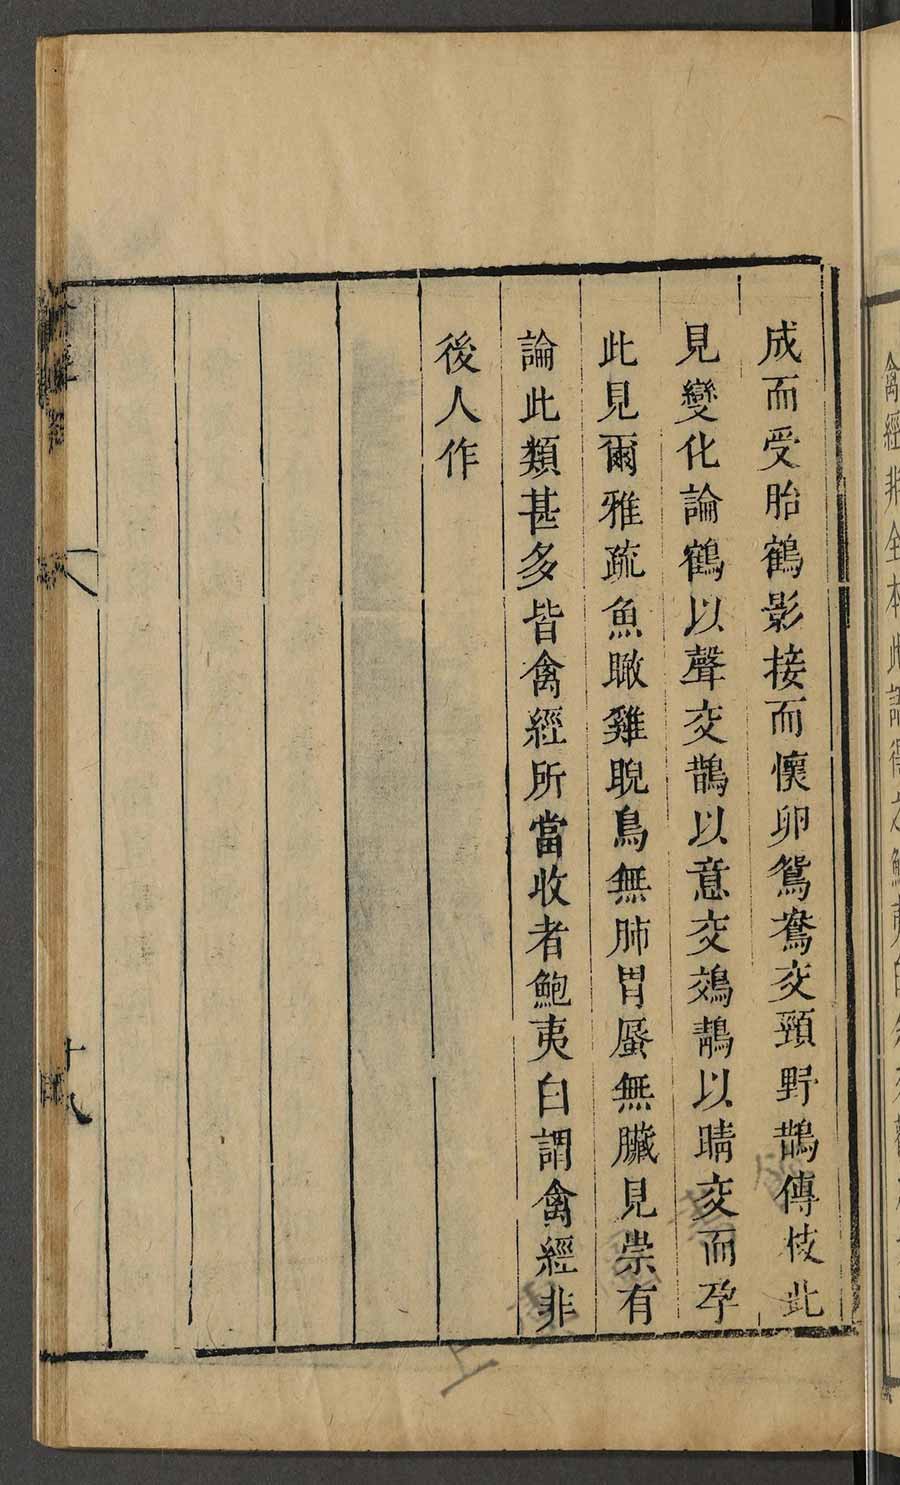 成而受胎鶴影接而懷卵鴛鴦交頸野鵲傳枝此
見變化論鶴以聲交鵲以意交鵁鶄以睛交而孕
此見爾雅疏魚瞰雞睨鳥無肺胃蜃無臟見崇有
論此類甚多皆禽經所當收者鮑夷白謂禽經非
後人作